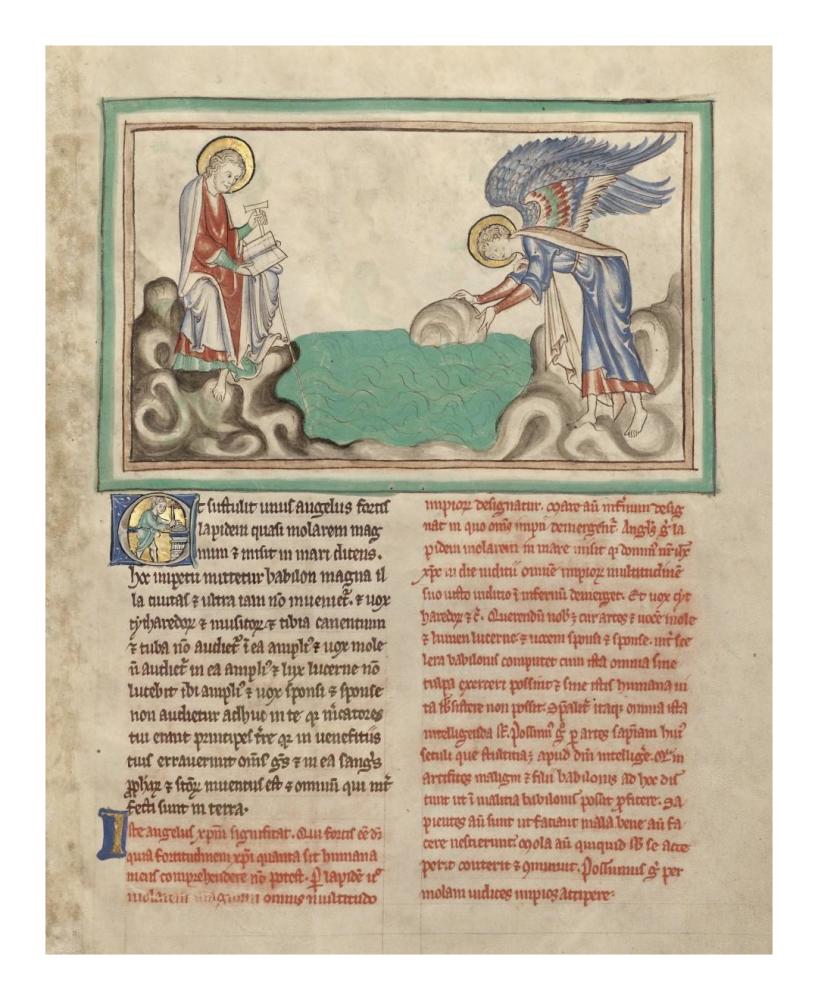 Et sustulit unus angelus fortis
lapidem quasi molarem mag
num ⁊ misit in mari dicens.
hoc impetu mittetur babilon magna il
la ciuitas ⁊ ultra iam nō inueniet̄. ⁊ uox
cytharedoꝝ ⁊ musicoꝝ ⁊ tibia canentium
⁊ tuba nō audiet᷑ ī ea ampli᷒ ⁊ uox mole
n̄ audiet᷑ in ea ampli᷒ ⁊ lux lucerne nō
lucebit ibi ampli᷒ ⁊ uox sponsi ⁊ sponse
non audietur adhuc in te qꝛ m̄catores
tui erant principes t̄re qꝛ in uenefitiis
tuis errauerunt om̄s ḡs ⁊ in ea sanḡs
ꝓphaꝝ ⁊ sc̄oꝝ inuentus est ⁊ omniū qui int̄
fecti sunt in terra.
Iste angelus xp̄m significat. Qui fortis ēē dr̄
quia fortitudinem xp̄i quanta sit humana
mens comprehendere nō potest. P lapidē ū
molarem magnum omnis multitudo
impioꝝ designatur. Mare aū infernum desig
nat in quo om̄s impii demergent᷑. Angl̄s ḡ la
pidem molarem in mare misit qꝛ domin᷒ nr̄ ih̄c
xp̄c in die iudicii omnē impioꝝ multitudinē
suo iusto iuditio ī infernū demerget. Et uox cyt
haredoꝝ ⁊ c̄. Querendū nob̄ ē cur artes ⁊ uocē mole
⁊ lumen lucerne ⁊ uocem sponsi ⁊ sponse. int̄ sce
lera babilonis computet cum ista omnia sine
culpa exerceri possint ⁊ sine istis humana ui
ta subsistere non possit. Sp̄alit᷑ itaqꝫ omnia ista
intelligenda st̄. Possum᷒ ḡ p artes sapiam hui᷒
seculi que stultitia ē apud dm̄ intellige. Qꝛ in
artifices maligni ⁊ filii babilonis ad hoc dis
cunt ut ī malitia babilonis possit ꝓficere. Sa
pientes aū sunt ut faciant mala bene aū fa
cere nescierunt. Mola aū quicquid sb̄ se acce
perit conterit ⁊ 9minuit. Possumus ḡ per
molam iudices impios accipere.